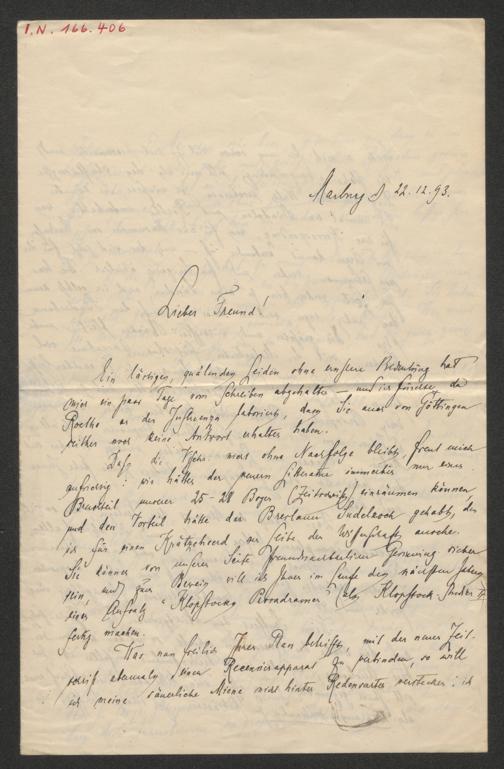 I.N. 166.406
Marburg d 22.12.93.
Lieber Freund!
Ein lästiges, quälendes Leiden ohne ernstere Bedeutung hat
mich ein paar Tage vom Schreiben abgehalten – und ich fürchte, da
Roethe an der Influenza laborirt, dass Sie auch von Göttingen
bisher noch keine Antwort erhalten haben.
Dass die Vjschr nicht ohne Nachfolge bleibt, freut mich
aufrichtig: wir hätten der neuern Litteratur immerhin nur einen
Bruchteil unserer 25-28 Bogen (Zeitschrift) einräumen können,
und den Vorteil hätte der Breslauer Sudelkoch gehabt, den
ich für einen Krätzeherd am Leibe der Wissenschaft ansehe.
Sie können von unserer Seite freundnachbarlicher Gesinnung sicher
sein, und zum Beweis will ich Ihnen im Laufe des nächsten Jahres
einen Aufsatz "Klopstocks Bardendramen" (
Klopstock-Studien
fertig machen.
Was nun freilich Ihren Plan betrifft, mit der neuen Zeit-
schrift abermals einen Recensierapparat zu verbinden, so will
ich meine säuerliche Miene nicht hinter Redensarten verstecken: ich